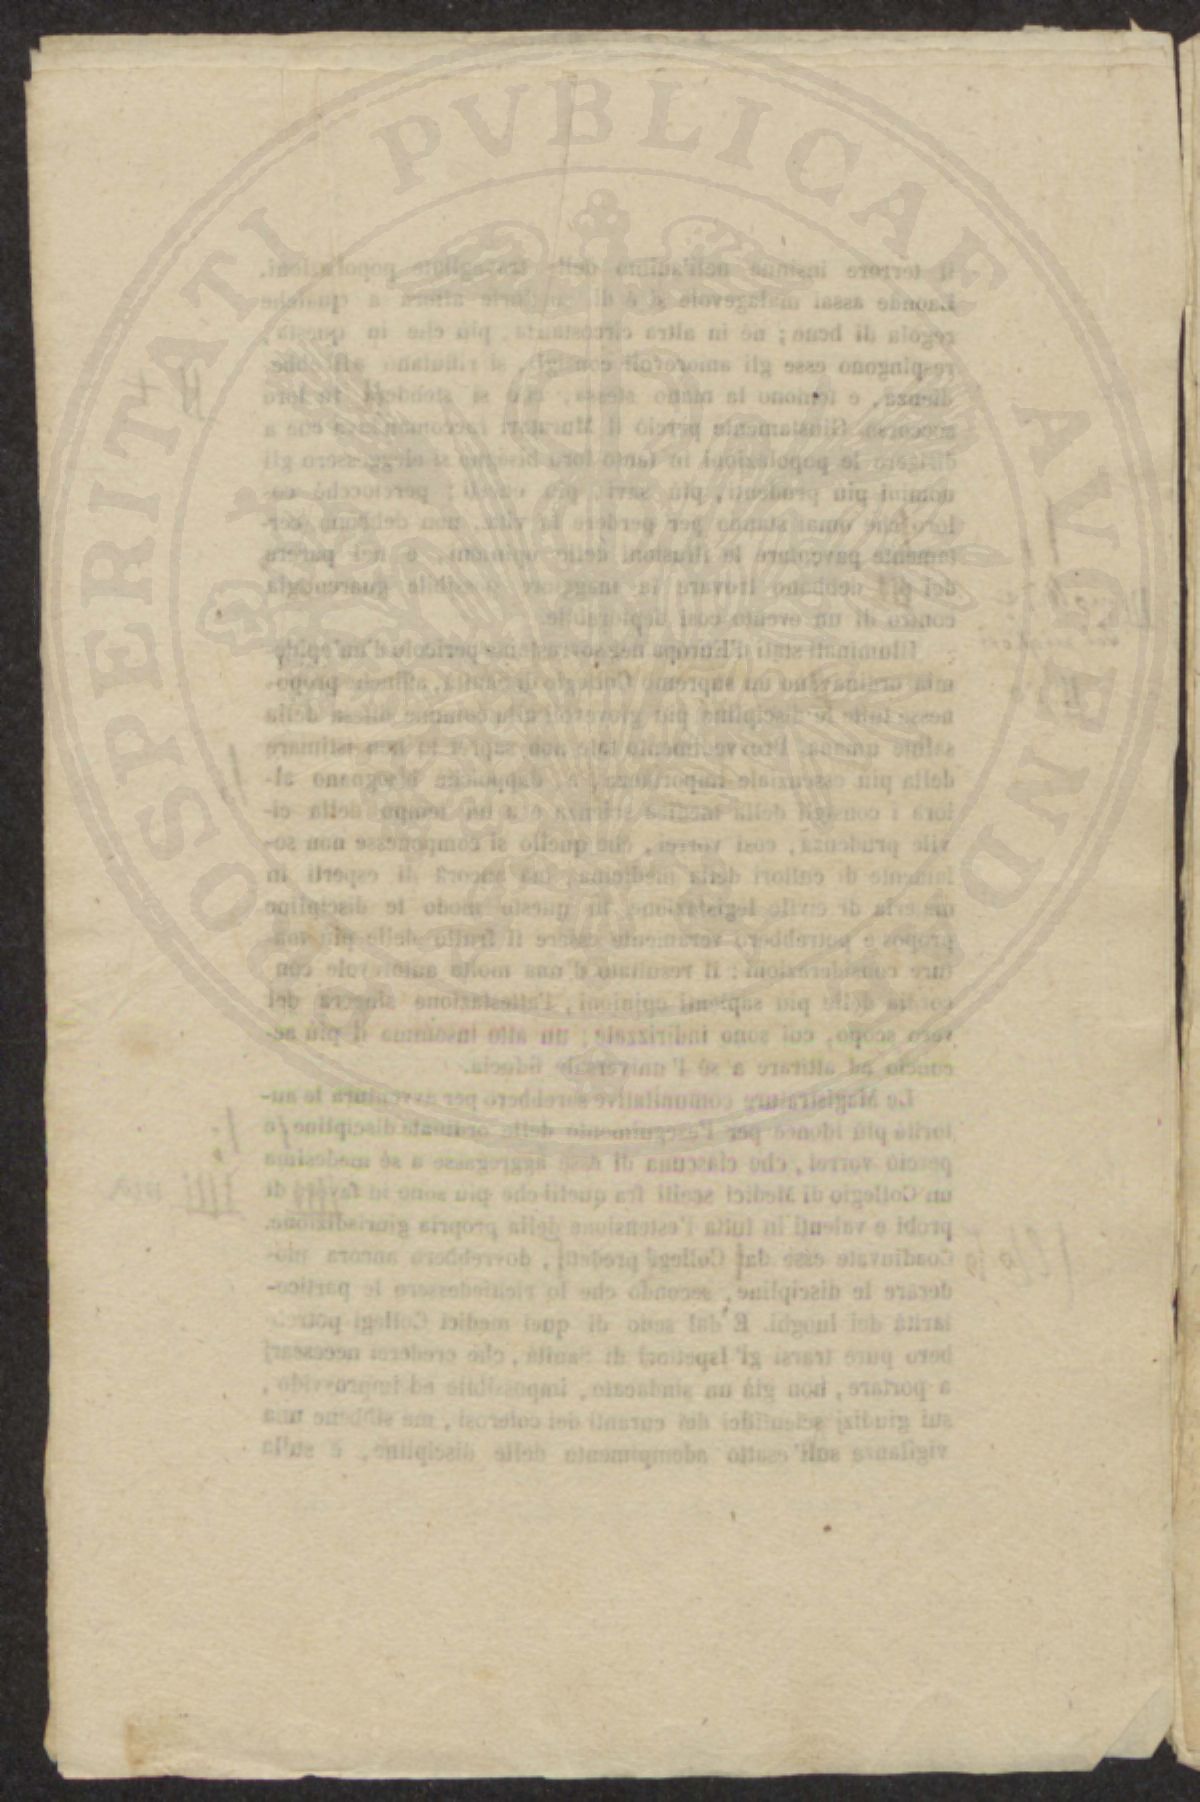 PROSPERITATI PUBLICAE AVGENDAE
il terrore insinua nell'animo delle travagliate popolazioni.
Laonde assai malagevole si è di condurle allora a qualche
regola di bene; nè in altra circostanza, più che in questa,
respingono esse gli amorevoli consigli, si rifiutano all'obbe-
dienza, e temono la mano stessa, che si stenderà in loro
soccorso. Giustamente perciò il Muratori raccomandava che a
dirigere le popolazioni in tanto loro bisogno si eleggessero gli
uomini più prudenti, più savi, più onesti; perciocchè co-
loro che omai stanno per perdere la vita, non debbono cer-
tamente paventare le illusioni delle opinioni, e nel parere
dei più debbano trovare la maggiore possibile guarentigia
contro di un evento così deplorabile.
Illuminati stati d'Europa nel sovrastante pericolo d'un'epide-
mia ordinavano un supremo Collegio di Sanità, affinchè propo-
nesse tutte le discipline più giovevoli alla comune difesa della
salute umana. Provvedimento tale non saprei io non istimare
della più essenziale importanza, e, dappoichè bisognano al-
lora i consigli della medica scienza e a un tempo della ci-
vile prudenza, così vorrei, che quello si componesse non so-
lamente di cultori della medicina, ma ancora di esperti in
materia di civile legislazione. In questo modo le discipline
proposte potrebbero veramente essere il frutto delle più ma-
ture considerazioni: il resultato d'una molto autorevole con-
cordia delle più sapienti opinioni, l'attestazione sincera del
vero scopo, cui sono indirizzate; un atto insomma il più ac-
concio ad attirare a sè l'universale fiducia.
Le Magistrature comunitative sarebbero per avventura le au-
torità più idonee per l'eseguimento delle ordinate discipline; e
perciò vorrei, che ciascuna di esse aggregasse a sè medesima
un Collegio di Medici scelti fra quelli che più sono in favore di
probi e valenti in tutta l'estensione della propria giurisdizione.
Coadiuvate esse dai Collegi predetti, dovrebbero ancora mo-
derare le discipline, secondo che lo richiedessero le partico-
larità dei luoghi. E dal seno di quei medici Collegi potreb-
bero pure trarsi gl'Ispettori di Sanità, che crederei necessarj
a portare, non già un sindacato, impossibile ed improvvido,
sui giudizj scientifici dei curanti dei colerosi, ma sibbene una
vigilanza sull'esatto adempimento delle discipline, e sulla